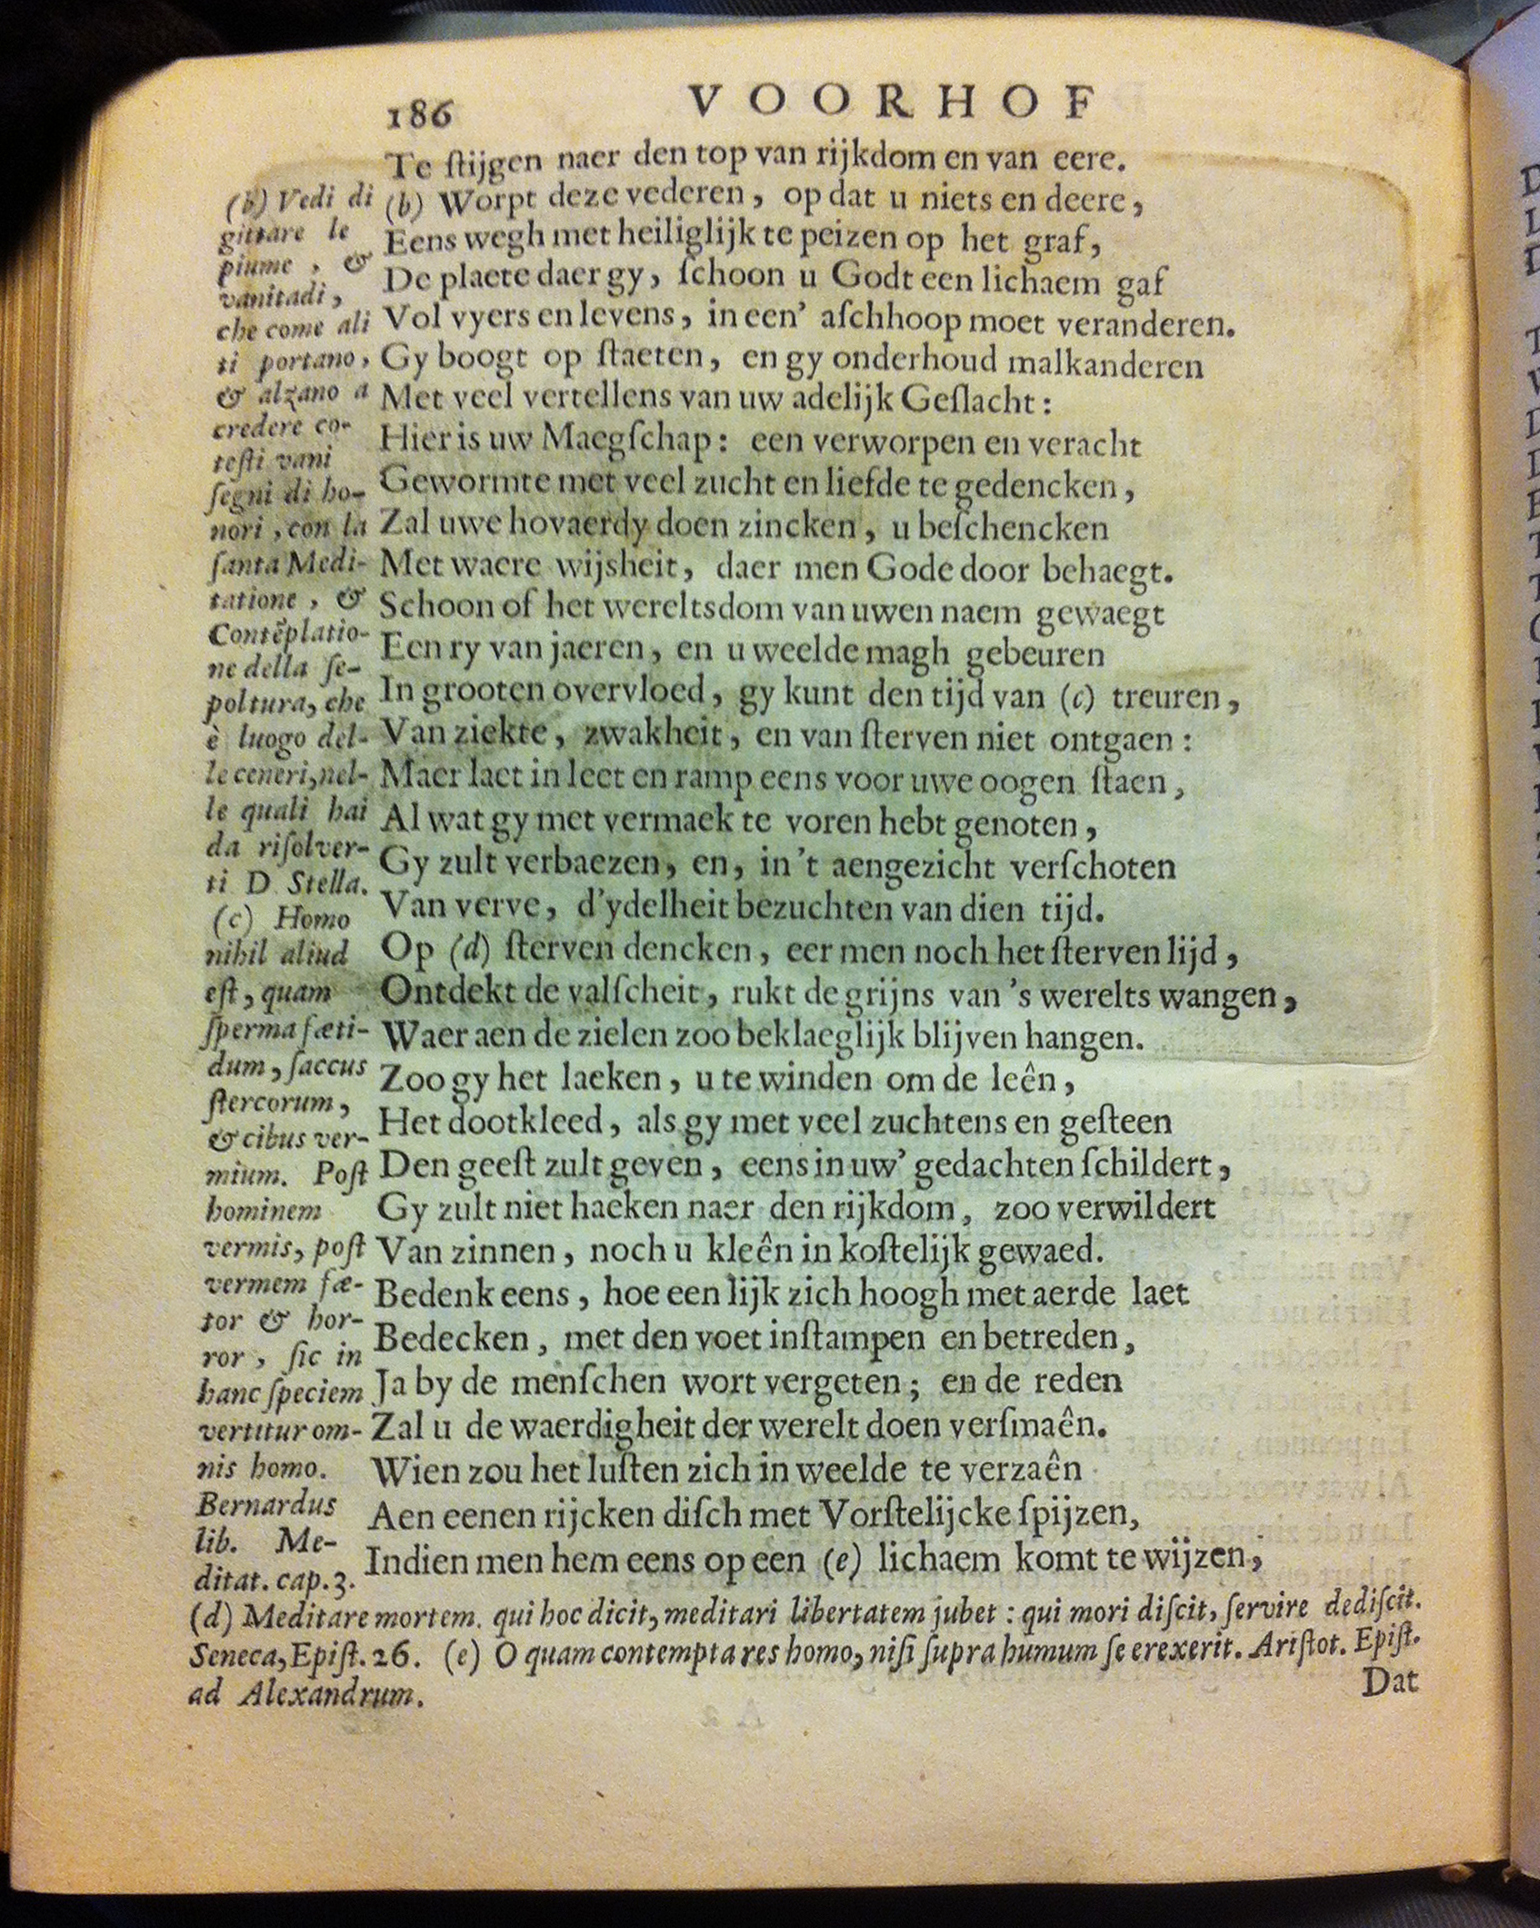 186 VOORHOF
Te ſtijgen naer den top van rijkdom en van eere.
(b) Worpt deze vederen, op dat u niets en deere,
Eens wegh met heiliglijk te peizen op het graf,
De plaete daer gy, ſchoon u Godt een lichaem gaf
Vol vyers en levens, in een' aſchhoop moet veranderen.
Gy boogt op ſtaeten, en gy onderhoud malkanderen
Met veel vertellens van uw adelijk Geſlacht:
Hier is uw Maegſchap: een verworpen en veracht
Gewormte met veel zucht en liefde te gedencken,
Zal uwe hovaerdy doen zincken, u beſchencken
Met waere wijsheit, daer men Gode door behaegt.
Schoon of het wereltsdom van uwen naem gewaegt
Een ry van jaeren, en u weelde magh gebeuren
In grooten overvloed, gy kunt den tijd van (c) treuren,
Van ziekte, zwakheit, en van ſterven niet ontgaen:
Maer laet in leet en ramp eens voor uwe oogen ſtaen,
Al wat gy met vermaek te voren hebt genoten,
Gy zult verbaezen, en, in 't aengezicht verſchoten
Van verve, d'ydelheit bezuchten van dien tijd.
Op (d) ſterven dencken, eer men noch het ſterven lijd,
Ontdekt de valſcheit, rukt de grijns van 's werelts wangen,
Waer aen de zielen zoo beklaeglijk blijven hangen.
Zoo gy het laeken, u te winden om de leên,
Het dootkleed, als gy met veel zuchtens en geſteen
Den geeſt zult geven, eens in uw' gedachten ſchildert,
Gy zult niet haeken naer den rijkdom, zoo verwildert
Van zinnen, noch u kleên in koſtelijk gewaed.
Bedenk eens, hoe een lijk zich hoogh met aerde laet
Bedecken, met den voet inſtampen en betreden,
Ja by de menſchen wort vergeten; en de reden
Zal u de waerdigheit der werelt doen verſmaên.
Wien zou het luſten zich in weelde te verzaên
Aen eenen rijcken diſch met Vorſtelijcke ſpijzen,
Indien men hem eens op een (e) lichaem komt te wijzen,
(b) Vedi di
gittare le
piume, &
vanitadi,
che come ali
ti portano,
& alzano a
credere co-
teſti vani
ſegni di ho-
nori, con la
ſanta Medi-
tatione, &
Contẽplatio-
ne della ſe-
poltura, che
è luogo del-
le ceneri, nel-
le quali hai
da riſolver-
ti D. Stella.
(c) Homo
nihil aliud
eſt, quam
ſperma fæti-
dum, ſaccus
ſtercorum,
& cibus ver-
mium. Poſt
hominem
vermis, poſt
vermem fæ-
tor & hor-
ror, ſic in
hanc ſpeciem
vertitur om-
nis homo.
Bernardus
lib. Me-
ditat. cap. 3.
(d) Meditare mortem. qui hoc dicit, meditari libertatem jubet: qui mori diſcit, ſervire dediſcit.
Seneca, Epiſt. 26. (e) O quam contempta res homo, niſi ſupra humum ſe erexerit. Ariſtot. Epiſt.
ad Alexandrum.
Dat